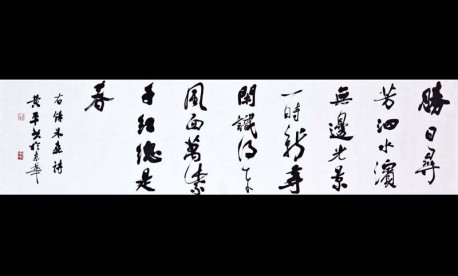 勝日尋
芳泗水濱
無邊光景
一時新等
閒識得東
風面萬紫
千紅總是
春
右錄朱熹詩
於京華